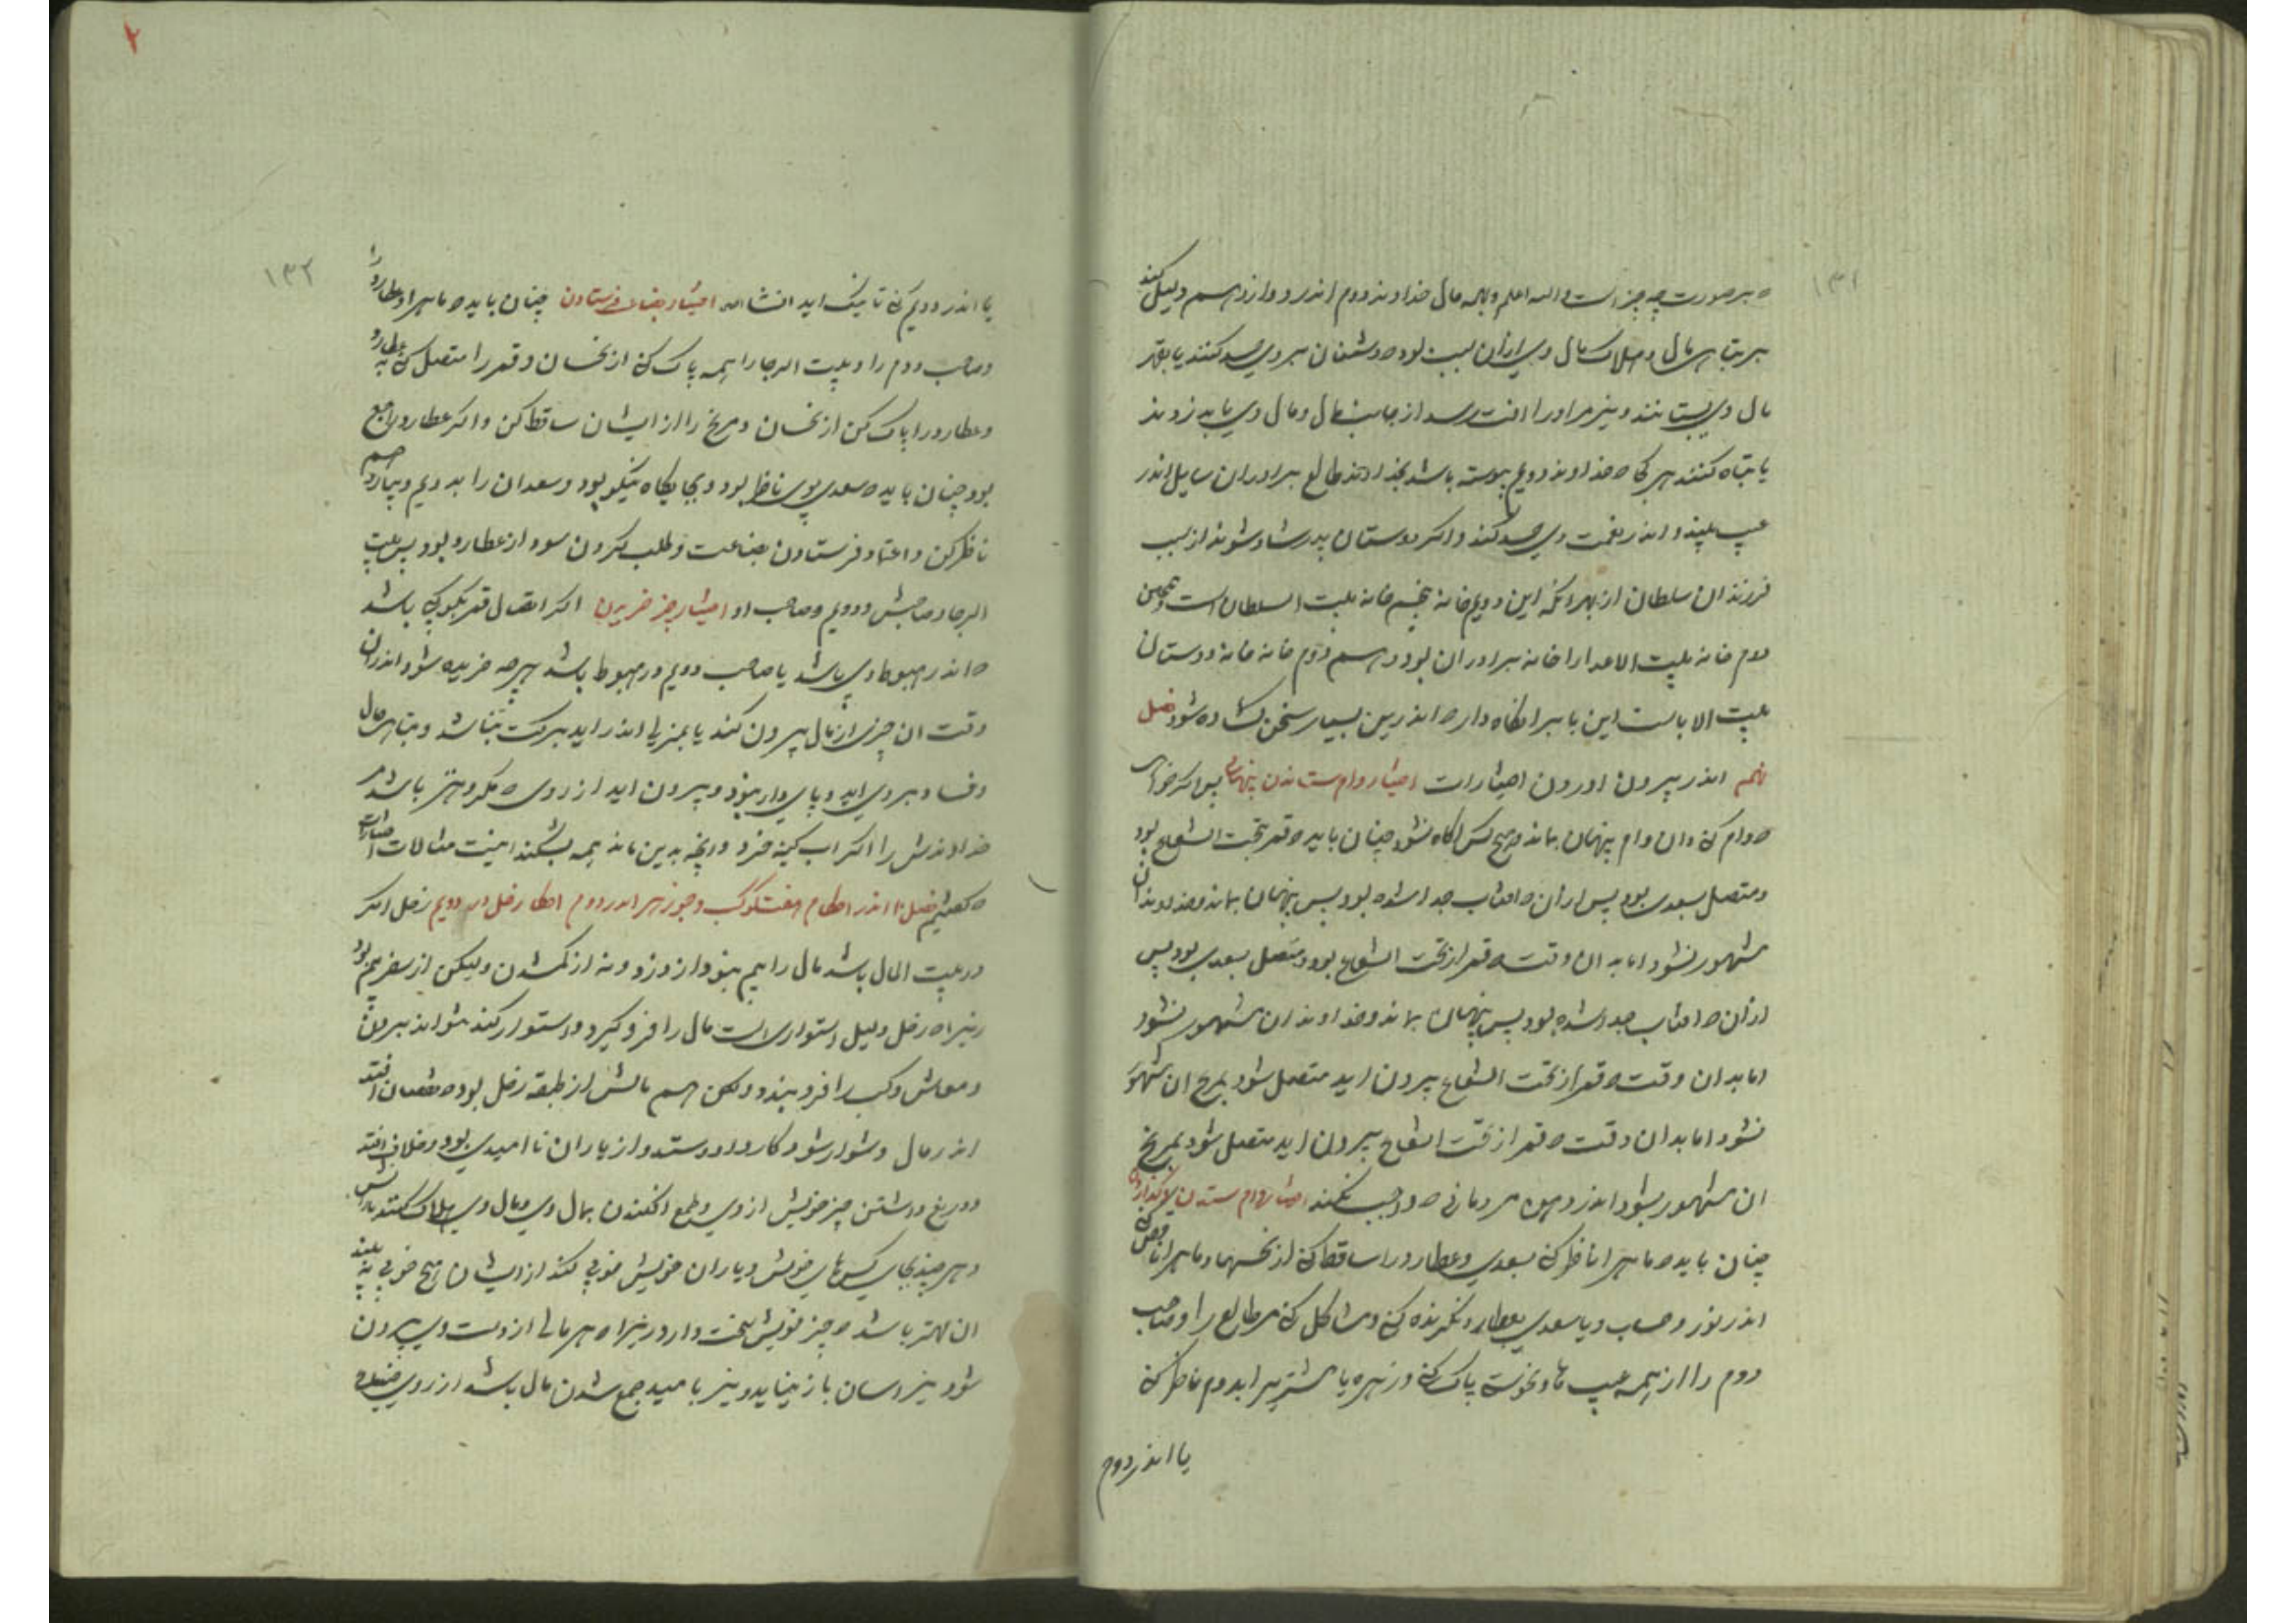 ۱۳۱
ه بر صورت چه چیز است و الله اعلم و بهمه حال خداوند دوم اندر دوازدهم دلیل کند
بر تباهی مال و هلاک مال وی ازان سبب بود ه دشمنان بر وی حسد کنند یا بقهر
مال وی بستانند و نیز مر او را افت رسد از جانب مال و مال وی یا بدزدند
یا تباه کنند هر کاه ه خداوند دویم پیوسته باشد بخداوند طالع برادران سایل اندر
عیب بیند و اندر نعمت وی حسد کنند و اکر دوستان پدر شاد شوند از سبب
فرزندان سلطان از بهر انکه این دویم خانه پنجم خانه بیت السلطان است و همچنین
دوم خانه بیت الاعدا را خانه برادران بود و هم دوم خانه خانه دوستان
بیت الابا است این بابرا نکاه دار ه اندرین بسیار سخن کشاده شود فصل
نهم اندر بیرون اوردن اختیارات اختیار وام ستاندن پنهان پس اکر خواهی
ه وام کنی و ان وام پنهان بماند و هیچ کس اکاه نشود چنان باید ه قمر تحت الشعاع بود
و متصل بسعدی بود پس از ان ه افتاب جدا شده بود پس پنهان بماند و خداوند ان
مشهور نشود اما بدان وقت ه قمر از تحت الشعاع بود و متصل بسعدی بود پس
ازان ه افتاب جدا شده بود پس پنهان بماند و خداوند ان مشهور نشود
اما بدان وقت ه قمر از تحت الشعاع بیرون اید متصل شود بمریخ ان مشهور
نشود اما بدان وقت ه قمر از تحت الشعاع بیرون اید متصل شود بمریخ
ان مشهور بشود اندر دهن مردمانی ه واجب نکند اختیار وام ستدن
چنان باید ه ماه را ناظر کنی بسعدی و عطارد را ساقط کنی از نحسها و ماه را ناقص کنی
اندر نور و حساب و یا سعدی بعطارد نکرنده کنی و مشاکل کنی مر طالع را و صاحب
دوم را از همه عیب ها و نحوست پاک کنی و زهره یا مشتری را بدوم ناظر کنی
یا اندر دوم
۲
۱۳۲
یا اندر دویم کنی تا نیک اید انشاالله اختیار بضاعت فرستادن چنان باید ه ماه را و عطارد را
و صاحب دوم را و بیت الرجا را همه پاک کنی از نحسان و قمر را متصل کنی به عطارد
و عطارد را پاک کن از نحسان و مریخ را از ایشان ساقط کن و اکر عطارد راجع
بود چنان باید ه سعدی بوی ناظر بود و بجایکاه نیکو بود و سعدان را به دویم و چهاردهم
ناظر کن و اعتماد فرستادن بضاعت و طلب کردن سود از عطارد بود پس بیت
الرجا و صاحبش و دویم و صاحب او اختیار چیز خریدن اکر اتصال قمر بکوکبی باشد
ه اندر هبوط وی باشد یا صاحب دویم در هبوط باشد هر چه خریده شود اندران
وقت ان چیزی از مال بیرون کند یا بمنزلی اندر اید برکت نباشد و تباهی مال
و فساد بر وی اید و پای دار نبود و بیرون اید از روی مکروهتر باشد مر
خداوندش را اکر اب کینه خرد و انچه بدین ماند همه بشکند اینست مثالات اختیارات
ه کفتیم فصل ۱۰ اندر احکام هفت کوکب و جوزهر اندر دوم احکام زحل در دویم زحل اکر
در بیت المال باشد مال را بیم نبود از دزد و نه از کم شدن ولیکن از سفر بیم بود
زیرا ه زحل دلیل استواری است مال را فرو کیرد و استوار کند نتواند بردن
و معاش و کسب را فرو بندد ولکن هم مالش از طبقه زحل بود ه نقصان افتد
اندر مال و دشوار شود کار داد و ستد و از یاران نا امیدی بود و خلاف افتد
و دریغ داشتن چیز خویش از وی و طمع افکندن بمال وی و مال وی هلاک کنند یارانش
و هر چند بجای کسهای خویش و یاران خویش خوبی کند از ایشان هیچ خوبی نه بیند
ان بهتر باشد ه چیز خویش سخت دارد زیرا ه هر مالی از دست وی بیرون
شود نیز اسان باز نیاید و نیز با مید جمع شدن مال باشد از روی